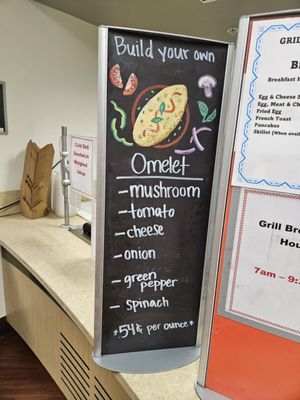 Build your own
Omelet
- mushroom
- tomato
- cheese
- onion
- green
pepper
- spinach
*.54¢ per ounce*
Cold Deli
Sandwich
Weighed
GRIL
B
Breakfast
Egg & Cheese S
Egg, Meat & Ch
Fried Egg
French Toast
Pancakes
Skillet (When avail
Grill Bre
Hou
7am – 9: